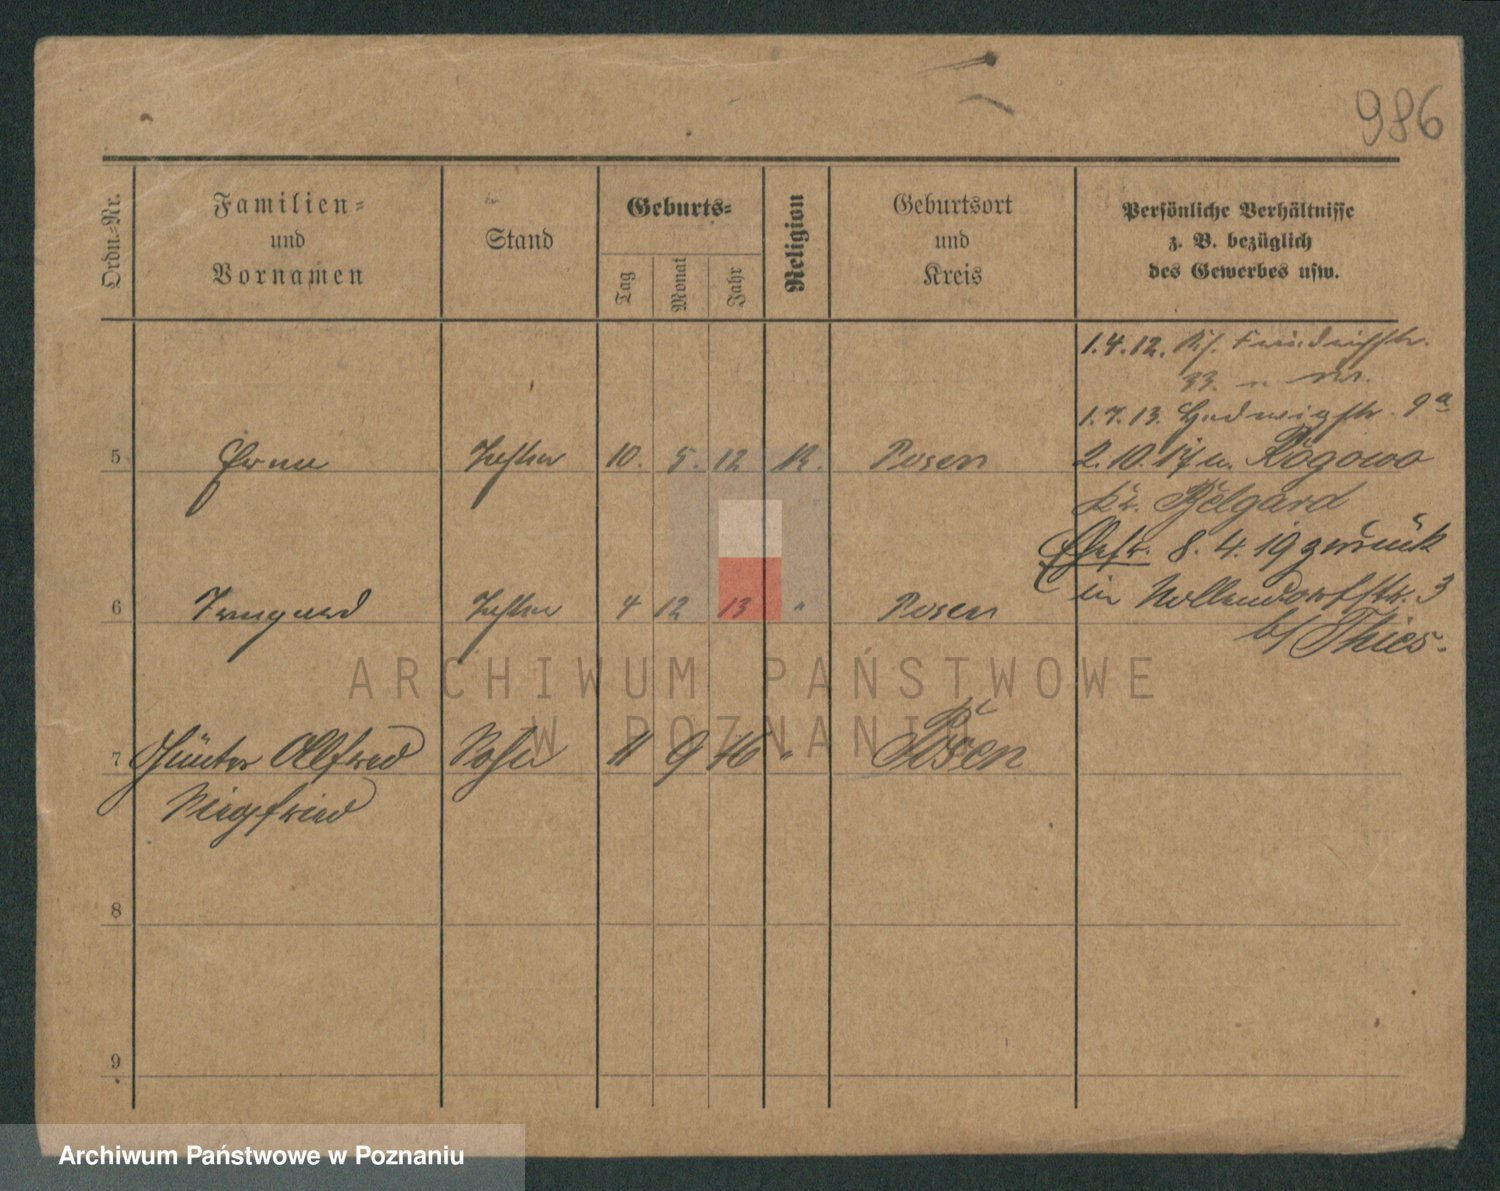 986
Ordn.-Nr.
Familien-
und
Vornamen
Stand
Geburts-
Tag
Monat
Jahr
Religion
Geburtsort
und
Kreis
Persönliche Verhältnisse
z. B. bezüglich
des Gewerbes usw.
1.4.12. Friedrichstr.
33.
1.7.13. Hedwigstr. 9a
5 Erna Tochter 10. 5. 12 Posen
2.10.17 n. Rogowo
Kr. Belgard
Ehefr. 8. 4. 19 zurück
in Nollendorfstr. 3
b/ Thies.
6 Irmgard Tochter 4 12 13 " Posen
7 Günter Alfred Sohn 11 9 16 " Posen
Siegfried
8
9
ARCHIWUM PAŃSTWOWE
W POZNANIU
Archiwum Państwowe w Poznaniu